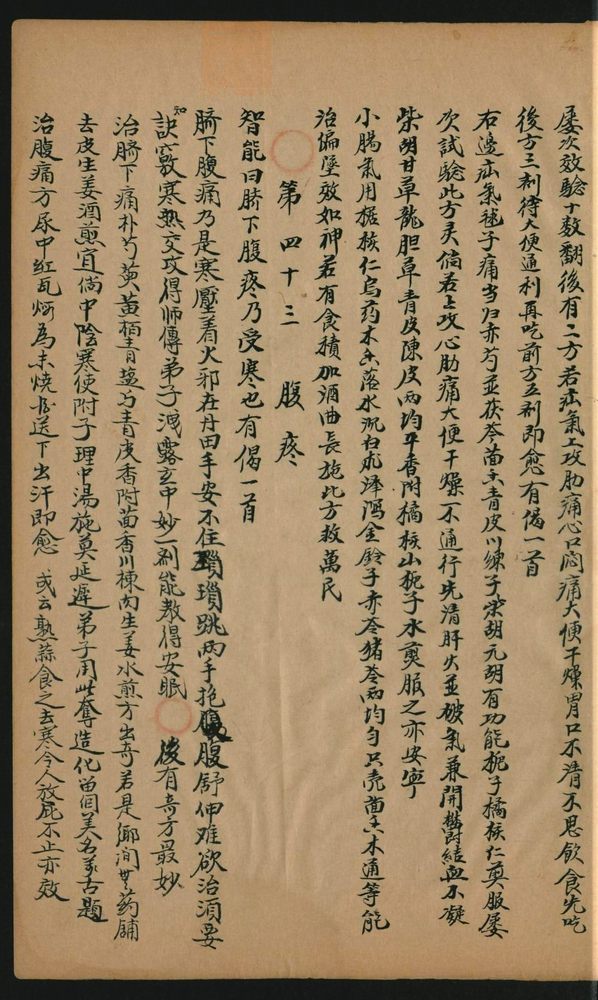 屡次效驗十数翻後有二方若疝氣上攻肋痛心口悶痛大便干燥胃口不清不思飲食先吃
後方三剂待大便通利再吃前方五剂即愈有偈一首
右邊疝氣毬子痛当归赤芍並茯苓茴香青皮川練子柴胡元胡有功能梔子橘核仁煎服屡
次試驗此方灵倘若上攻心肋痛大便干燥不通行先清肝火並破氣兼開鬱結血不凝
柴胡甘草龍胆草青皮陳皮兩均平香附橘核山梔子水煎服之亦安寧
小腸氣用橘核仁烏药木香落水沉白朮澤瀉金鈴子赤苓猪苓兩均勻只壳茴香木通等能
治偏墜效如神若有食積加酒曲長施比方救萬民
第四十三 腹疼
智能曰臍下腹疼乃受寒也有偈一首
臍下腹痛乃是寒壓着火邪在丹田手安不住蹟跳两手抱腹舒伸难欲治須要
知訣竅寒熱交攻得师傳弟子洩露玄中妙一剂能教得安眠 後有奇方最妙
治臍下痛朴芍萸黄栢青塩与青皮香附茴香川楝肉生姜水煎方出奇若是鄉间無药鋪
去皮生姜酒煎宜倘中陰寒使附子理中湯施莫延遲弟子用此奪造化留個美名萬古題
治腹痛方尿中紅瓦焙為末燒酒送下出汗即愈 或云熟蒜食之去寒令人放屁不止亦效